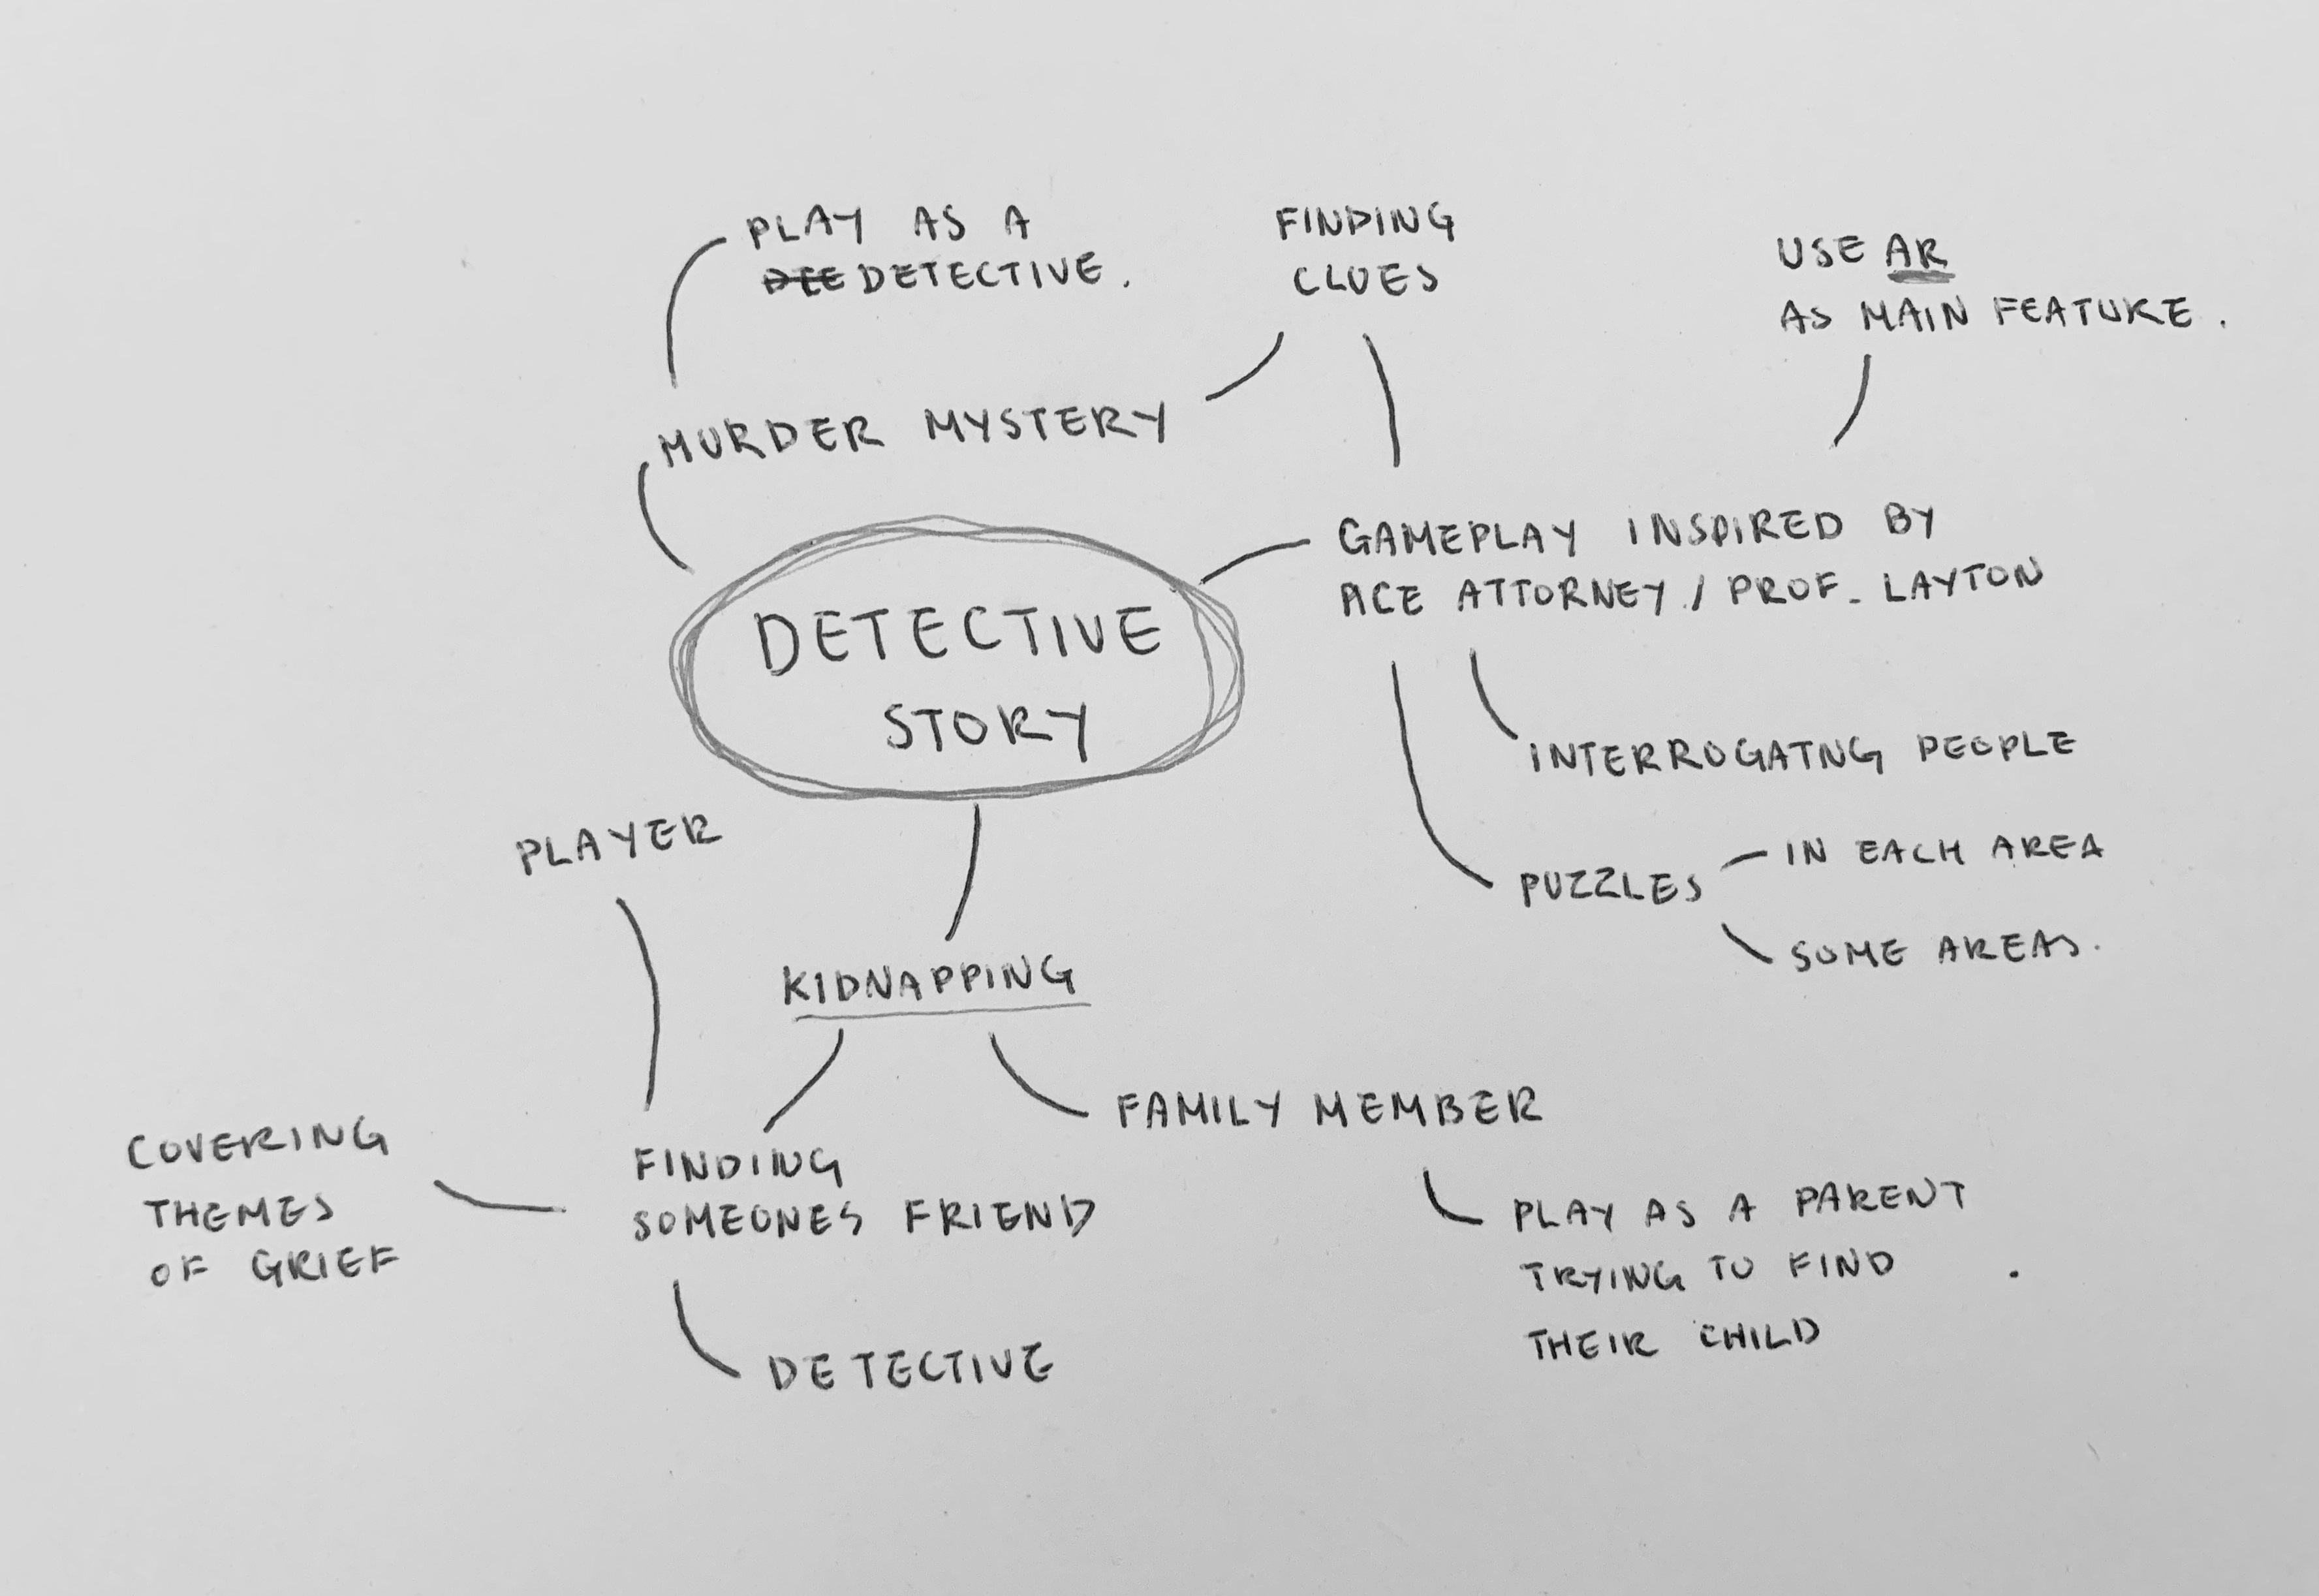 PLAY AS A
DEE DETECTIVE.
FINDING
CLUES
USE AR
AS MAIN FEATURE.
MURDER MYSTERY
GAMEPLAY INSPIRED BY
ACE ATTORNEY / PROF. LAYTON
DETECTIVE
STORY
INTERROGATNG PEOPLE
PLAYER
PUZZLES
IN EACH AREA
SOME AREAS.
KIDNAPPING
COVERING
THEMES
OF GRIEF
FINDING
SOMEONES FRIEND
FAMILY MEMBER
PLAY AS A PARENT
TRYING TO FIND
THEIR CHILD
DETECTIVE